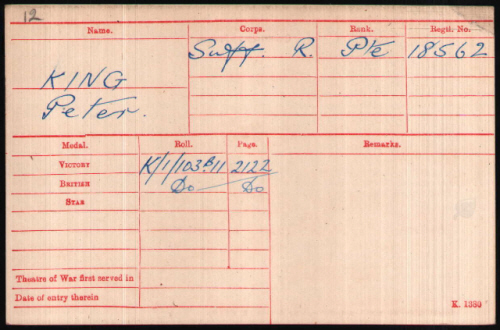 12
Name. Corps. Rank. Regtl. No.
Suff. R. Pte 18562
KING
Peter.
Medal. Roll. Page. Remarks.
VICTORY K/1/103 B11 2122
BRITISH Do Do
STAR
Theatre of War first served in
Date of entry therein
K. 1380